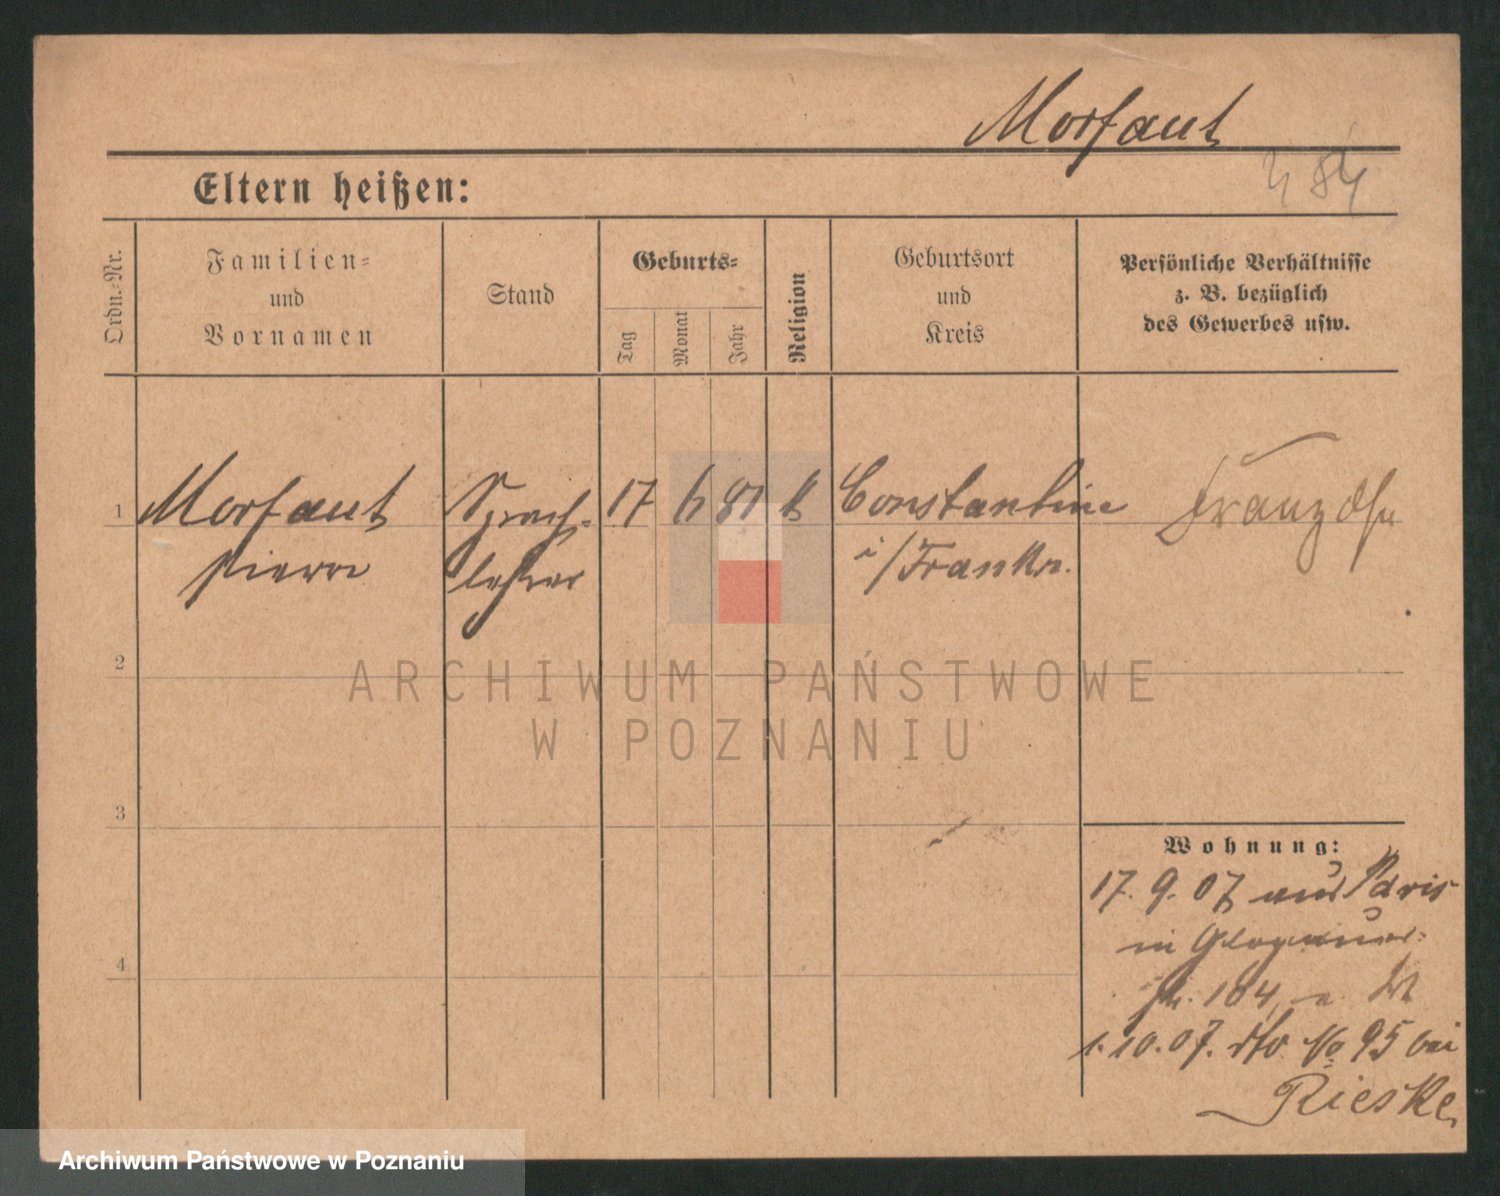 Morfaut
Eltern heißen:
Ordn.-Nr.
Familien-
und
Vornamen
Stand
Geburts-
Tag
Monat
Jahr
Religion
Geburtsort
und
Kreis
Persönliche Verhältnisse
z. B. bezüglich
des Gewerbes usw.
1
Morfaut Sprach- 17 6 81 k Constantine Franzose
Pierre lehrer i/Frankr.
2
ARCHIWUM PAŃSTWOWE
W POZNANIU
3
Wohnung:
17. 9. 07 aus Paris
in Glogauer-
4
str. 104
1. 10. 07. dto No 95 bei
Rieske
Archiwum Państwowe w Poznaniu